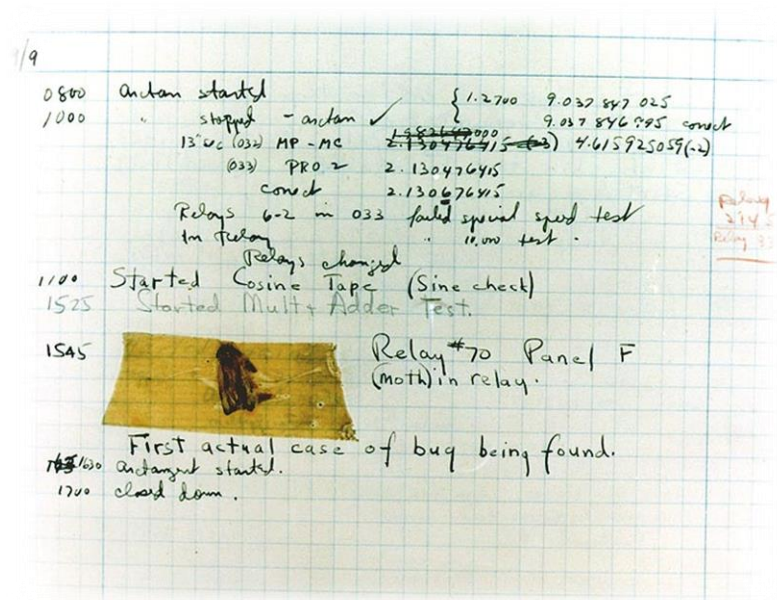 9/9
0800 Arctan started { 1.2700 9.037 847 025
1000 " stopped - arctan ✓ 9.037 846 995 correct
13"uc (032) MP - MC 2.130476415 (-3) 4.615925059(-2)
(033) PRO 2 2.130476415
correct 2.130676415
Relays 6-2 in 033 failed special speed test
In Relay " 10,000 test.
Relays changed
1100 Started Cosine Tape (Sine check)
1525 Started Mult+ Adder Test.
1545 Relay #70 Panel F
(moth) in relay.
First actual case of bug being found.
1630 arctangent started.
1700 closed down.
Relay
Relay